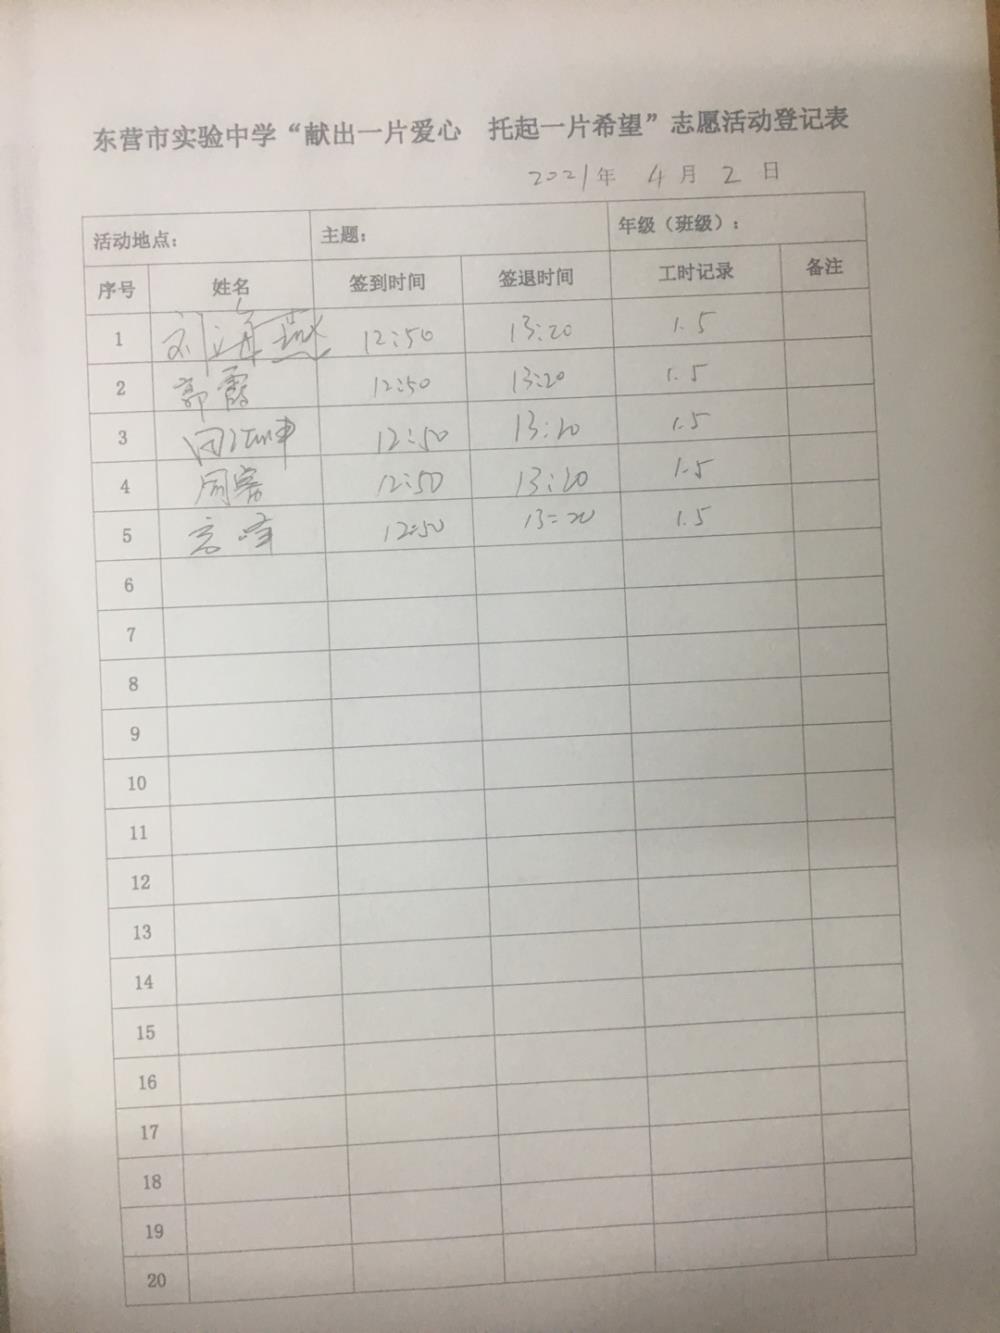 东营市实验中学“献出一片爱心 托起一片希望”志愿活动登记表
2021年 4月 2日
活动地点: 主题: 年级（班级）:
序号 姓名 签到时间 签退时间 工时记录 备注
1 刘海燕 12:50 13:20 1.5
2 郭霞 12:50 13:20 1.5
3 12:50 13:20 1.5
4 周 12:50 13:20 1.5
5 12:50 13:20 1.5
6
7
8
9
10
11
12
13
14
15
16
17
18
19
20